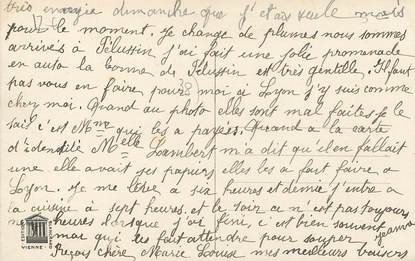 très dimanche que j'étais seule mais
pour le moment. je change de plumes nous sommes
arrivés à Pélussin j'ai fait une jolie promenade
en auto la bonne de Pélussin est très gentille. Il faut
pas vous en faire pour moi a Lyon j'y suis comme
chez moi. Quand au photo elles sont mal faites je le
sais c'est Mme qui les a payées. Quand a la carte
d'identité Melle Lambert m'a dit qu'il en fallait
une elle avait ses papiers elle les a fait faire a
Lyon. Je me lève a six heures et demie j'entre a
la cuisine à sept heures. et le soir ce n'est pas toujours
heures lorsque j'ai fini, c'est bien souvent
moi qui les fait attendre pour souper Jeanne
Reçois chère Marie Louise mes meilleurs baisers
EDITION
VIENNE